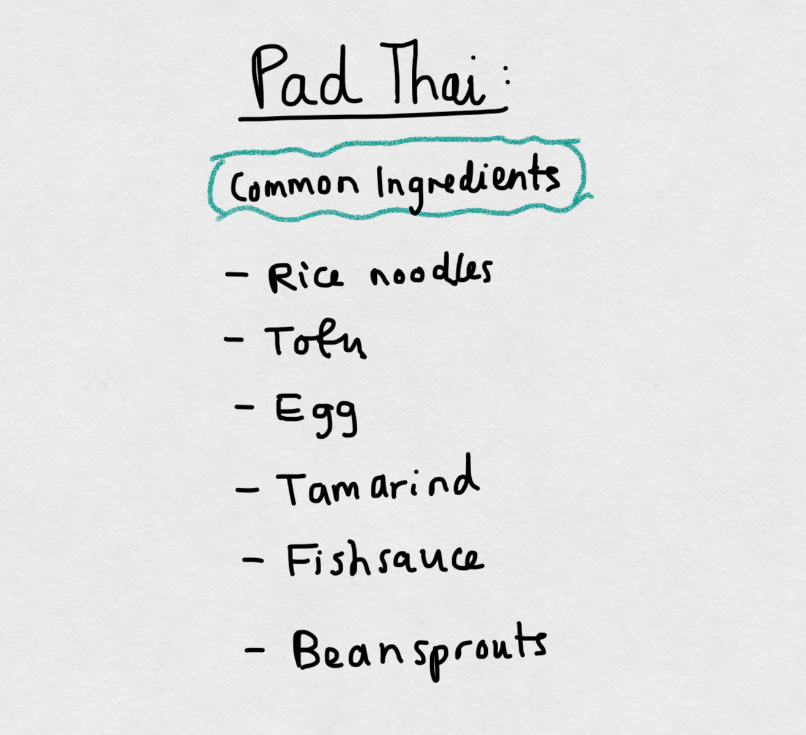 Pad Thai:
Common Ingredients
- Rice noodles
- Tofu
- Egg
- Tamarind
- Fishsauce
- Beansprouts